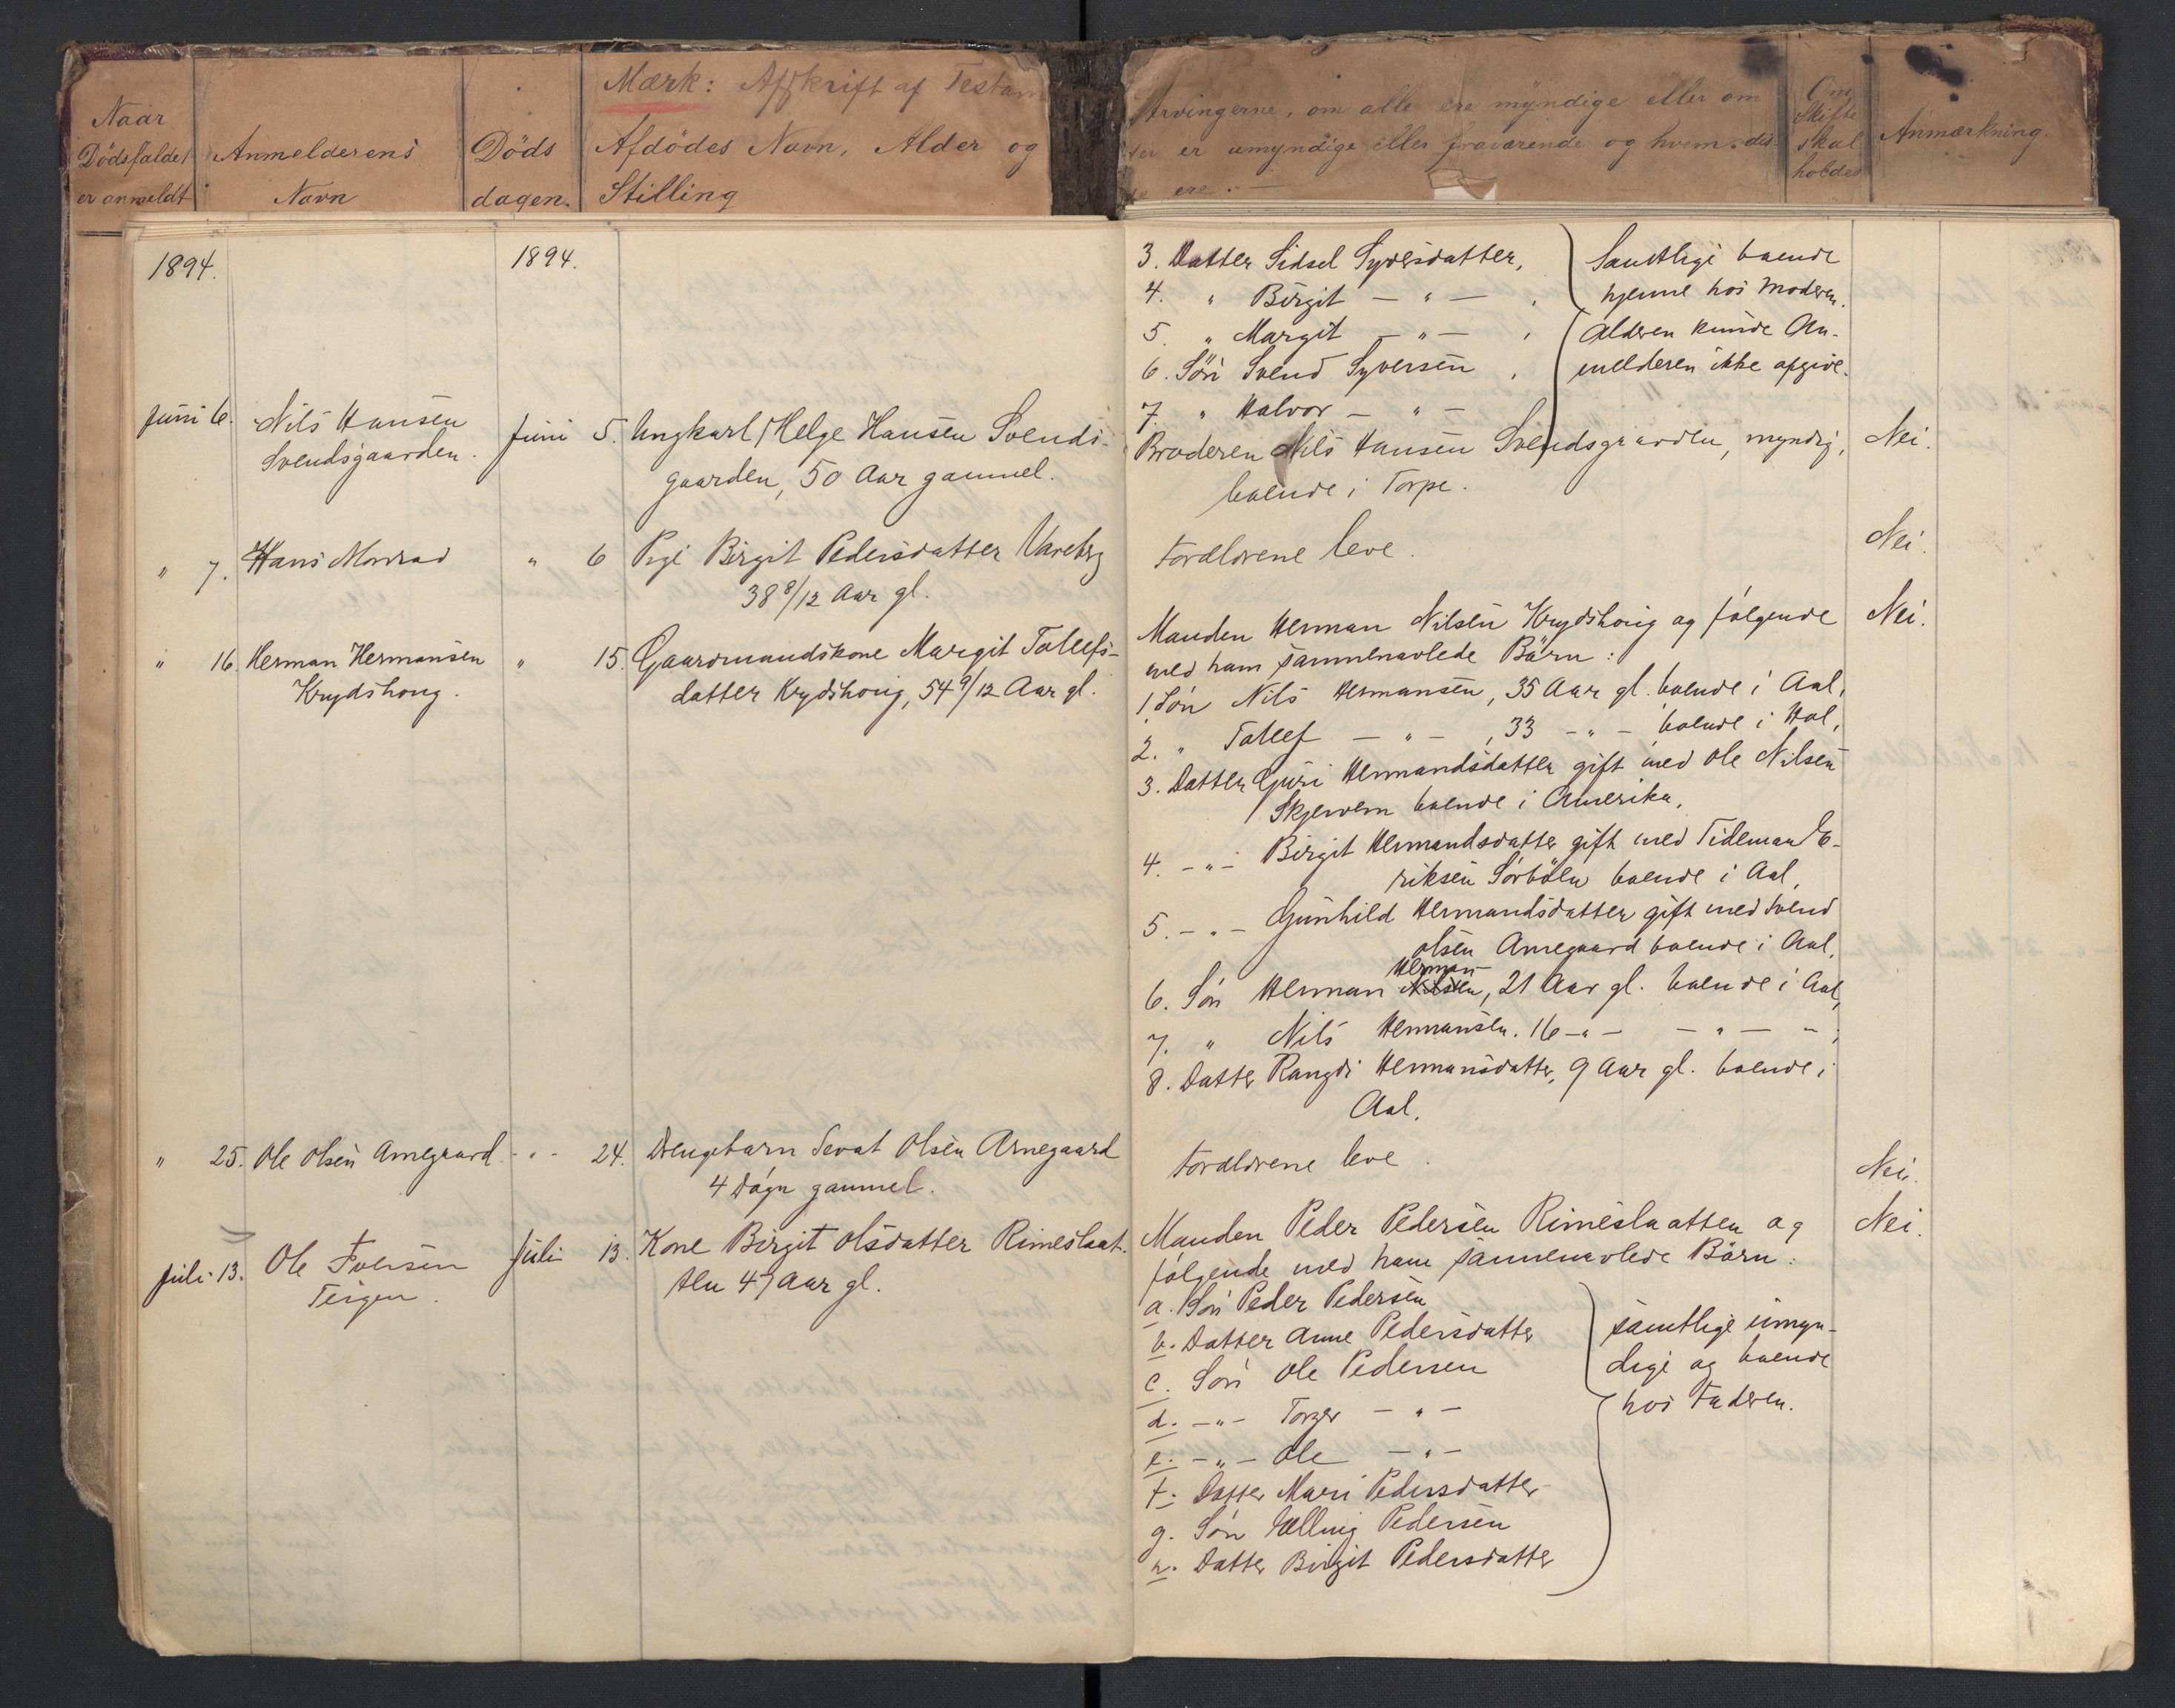 Mærk: Afskrift af Testam
Naar
Dödsfaldet
er anmeldt
Anmelderens
Navn
Döds
dagen.
Afdödes Navn, Alder og
Stilling
Arvingerne, om alle ere myndige eller om
er umyndige eller fraværende og hvem dis
ere.
Om
Skifte
skal
holdes
Anmærkning.
1894.
1894.
3. Datter Sidsel Syversdatter,
4. " Birgit — " — ,
5. " Margit — " — ,
6. Sön Svend Syversen ,
7. " Halvor — " —
Samtlige boende
hjemme hos Moderen.
Alderen kunde An-
melderen ikke opgive.
Juni 6.
Nils Hansen
Svendsgaarden.
Juni 5.
Ungkarl Helge Hansen Svends-
gaarden, 50 Aar gammel.
Broderen Nils Hansen Svendsgaarden, myndig,
boende i Torpe.
Nei.
" 7. Hans Morrad
" 6
Pige Birgit Pedersdatter Vareberg
38 8/12 Aar gl.
Forældrene leve.
Nei.
" 16. Herman Hermansen
Krydshoug.
" 15.
Gaardmandskone Margit Tollefs-
datter Krydshoug, 54 9/12 Aar gl.
Manden Herman Nilsen Krydshoug og følgende
med ham sammenavlede Börn:
Nei.
1. Sön Nils Hermansen, 35 Aar gl. boende i Aal,
2. " Tollef — " — , 33 — " — boende i Hol,
3. Datter Guri Hermandsdatter gift med Ole Nilsen
Skjervem boende i Amerika,
4. — " — Birgit Hermandsdatter gift med Tideman E-
riksen Sörbölen boende i Aal,
5. — " — Gunhild Hermandsdatter gift med Svend
Olsen Arnegaard boende i Aal,
Herman
6. Sön Herman Nilsen, 21 Aar gl. boende i Aal,
7. " Nils Hermansen. 16 — " — — " — —,
8. Datter Rangdi Hermansdatter, 9 Aar gl. boende i
Aal.
" 25. Ole Olsen Arnegaard
- " - 24.
Drengebarn Sevat Olsen Arnegaard
4 Dögn gammel.
Forældrene leve.
Nei.
Juli 13. Ole Iversen
Teigen.
Juli 13.
Kone Birgit Olsdatter Rimeslaat-
ten 47 Aar gl.
Manden Peder Pedersen Rimeslaatten og
følgende med ham sammenavlede Börn:
Nei.
a. Sön Peder Pedersen
b. Datter Anne Pedersdatter
c. Sön Ole Pedersen
d. — " — Torger — " —
e. — " — Ole — " —
f. Datter Mari Pedersdatter
g. Sön Elling Pedersen
h. Datter Birgit Pedersdatter
samtlige umyn-
dige og boende
hos Faderen.